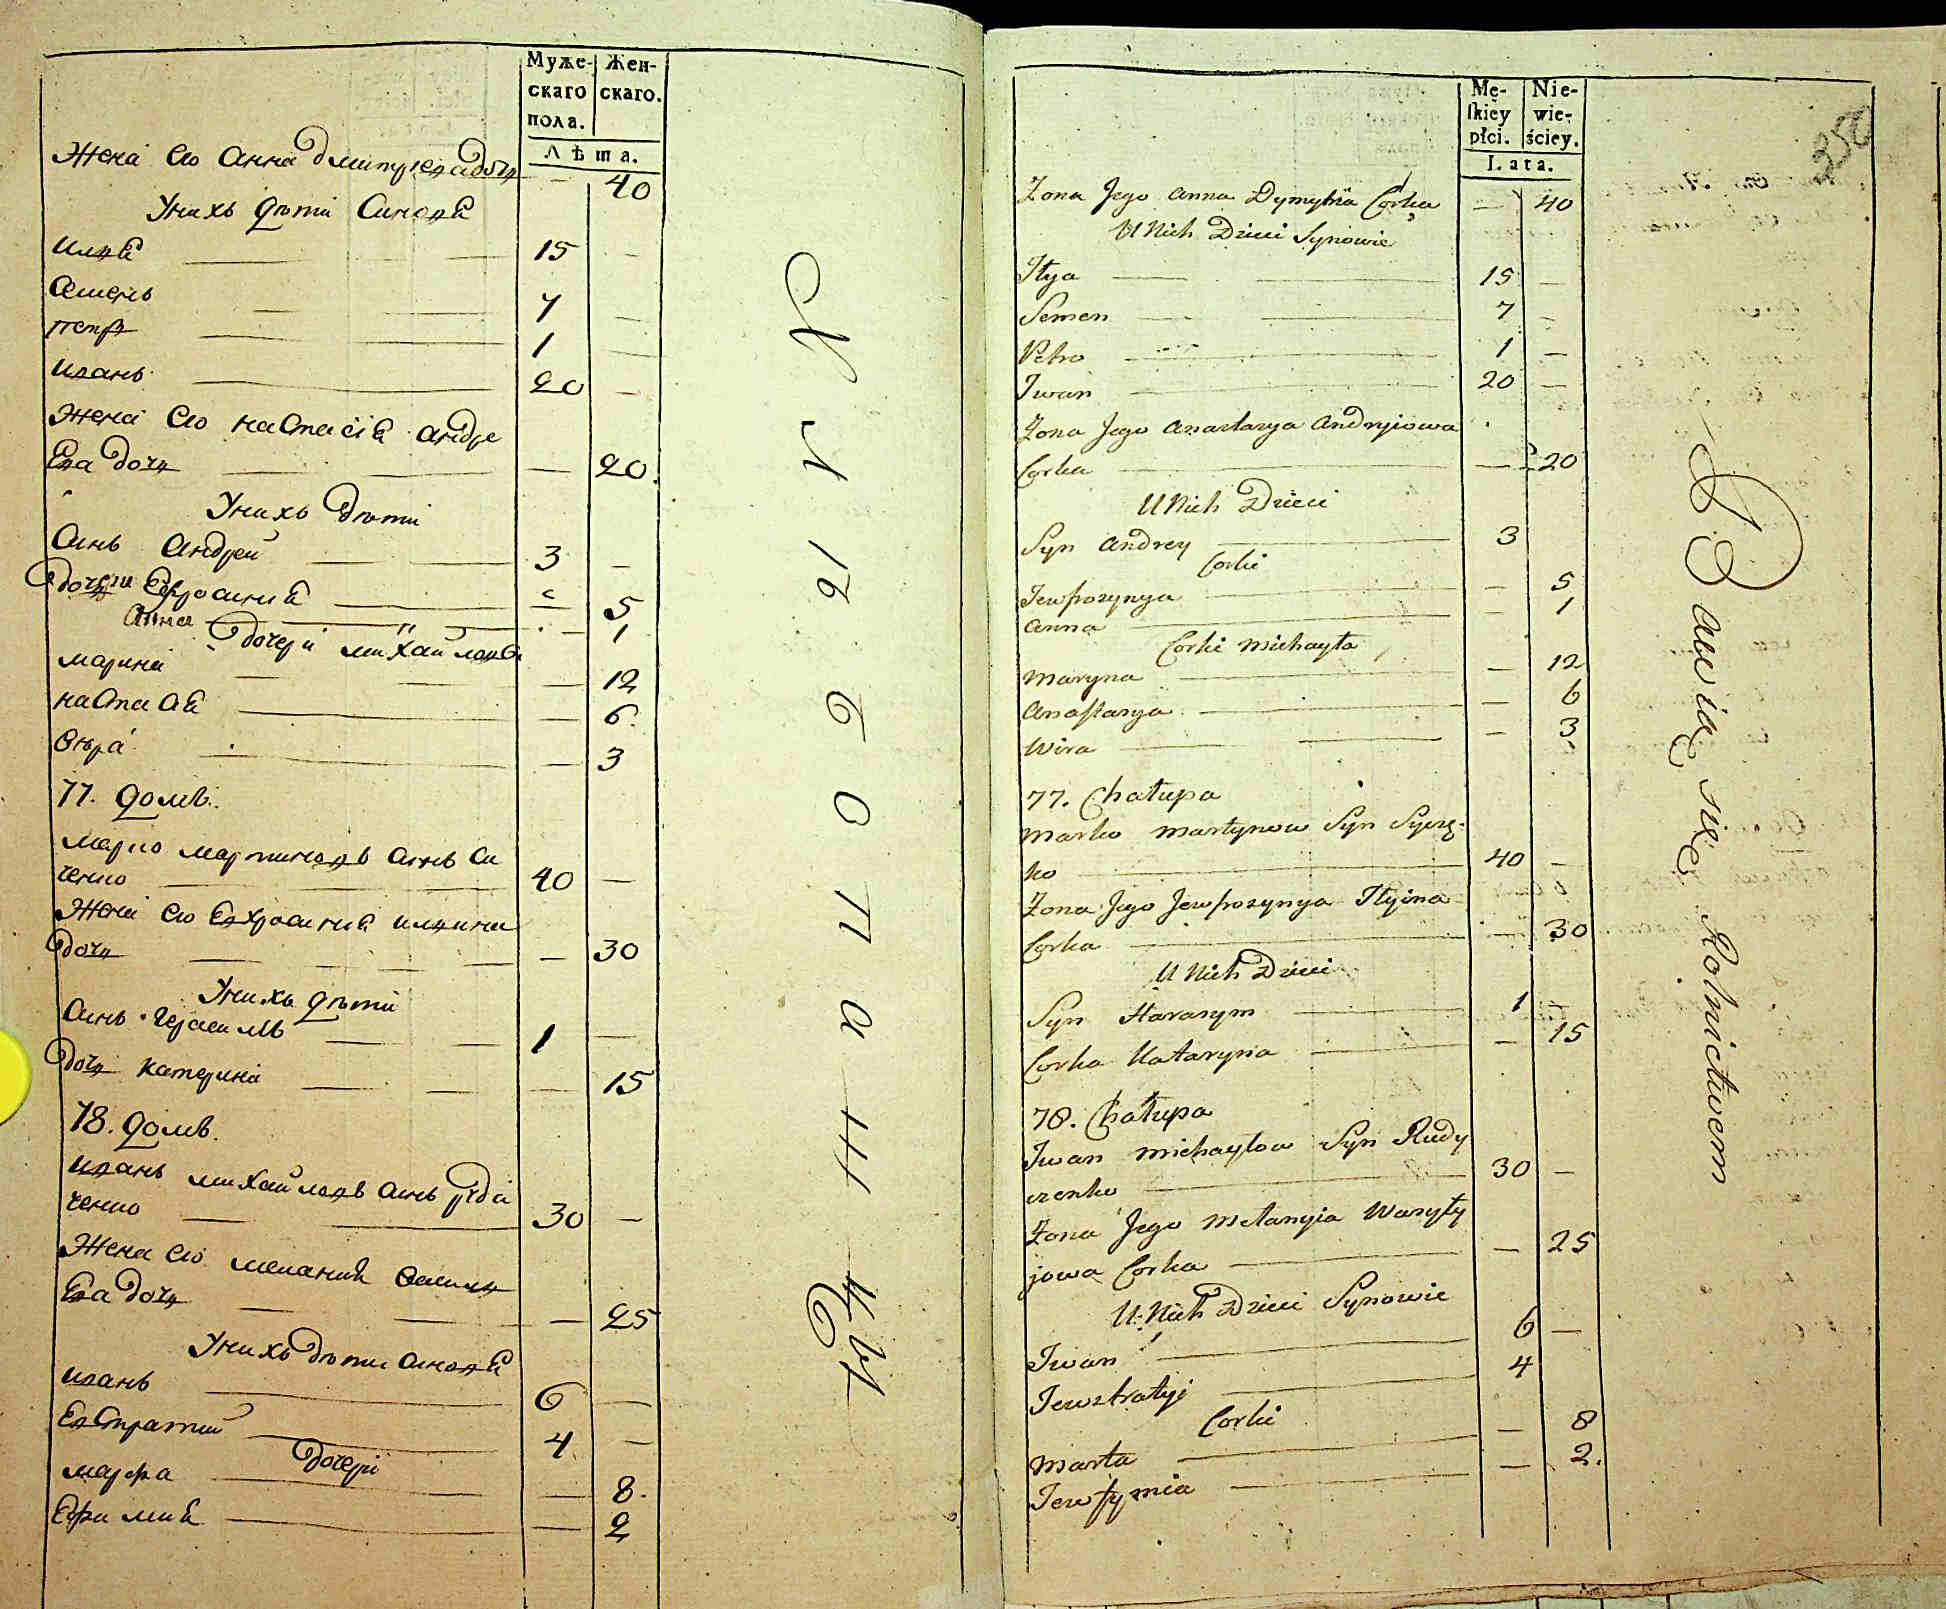 Муже-
скаго
пола.
Жен-
скаго.
Лѣта.
Жена его Анна Дмитриева дочь — 40
У нихъ дѣти Синовя
Илья 15 —
Семень 7 —
Петръ 1 —
Иванъ 20 —
Жена его Настасія Андре
ева дочь — 20
У нихъ дѣти
Синъ Андрей 3 —
Дочери Ефросиния — 5
Анна — 1
Дочери Михайлови
Марина — 12
Настасия — 6
Вѣра — 3
77. домъ.
Марко Мартиновъ синъ Си
ченко 40 —
Жена его Евхросиния Ильина
дочь — 30
У нихъ дѣти
Синъ Герасимъ 1 —
Дочь Катерина — 15
78. домъ.
Иванъ Михайловъ синъ Руди
ченко 30 —
Жена его Мелания Василь
ева дочь — 25
У нихъ дѣти синовя
Иванъ 6 —
Евстратий 4 —
Дочери
Марфа — 8
Ефимия — 2
Mę-
skiey
płci.
Nie-
wie-
ściey.
Lata.
Żona Jego Anna Dymytria Corka — 40
U Nich Dzieci Synowie
Ilya 15 —
Semen 7 —
Petro 1 —
Iwan 20 —
Żona Jego Anastazya Andryiowa
Corka — 20
U Nich Dzieci
Syn Andrey 3
Corki
Jewfrozynya — 5
Anna — 1
Corki Michayła
Maryna — 12
Anastazya — 6
Wira — 3
77. Chałupa
Marko Martynow Syn Syczę-
ko 40 —
Żona Jego Jewfrozynya Ilyina
Corka — 30
U Nich Dzieci
Syn Harasym 1 —
Corka Kataryna — 15
78. Chałupa
Iwan Michayłow Syn Rudy
czenko 30 —
Żona Jego Mełanyia Wasyly
jowa Corka — 25
U Nich Dzieci Synowie
Iwan 6 —
Jewstratyi 4
Corki
Marta — 8
Jewfymia — 2.
Bawią się Rolnictwem